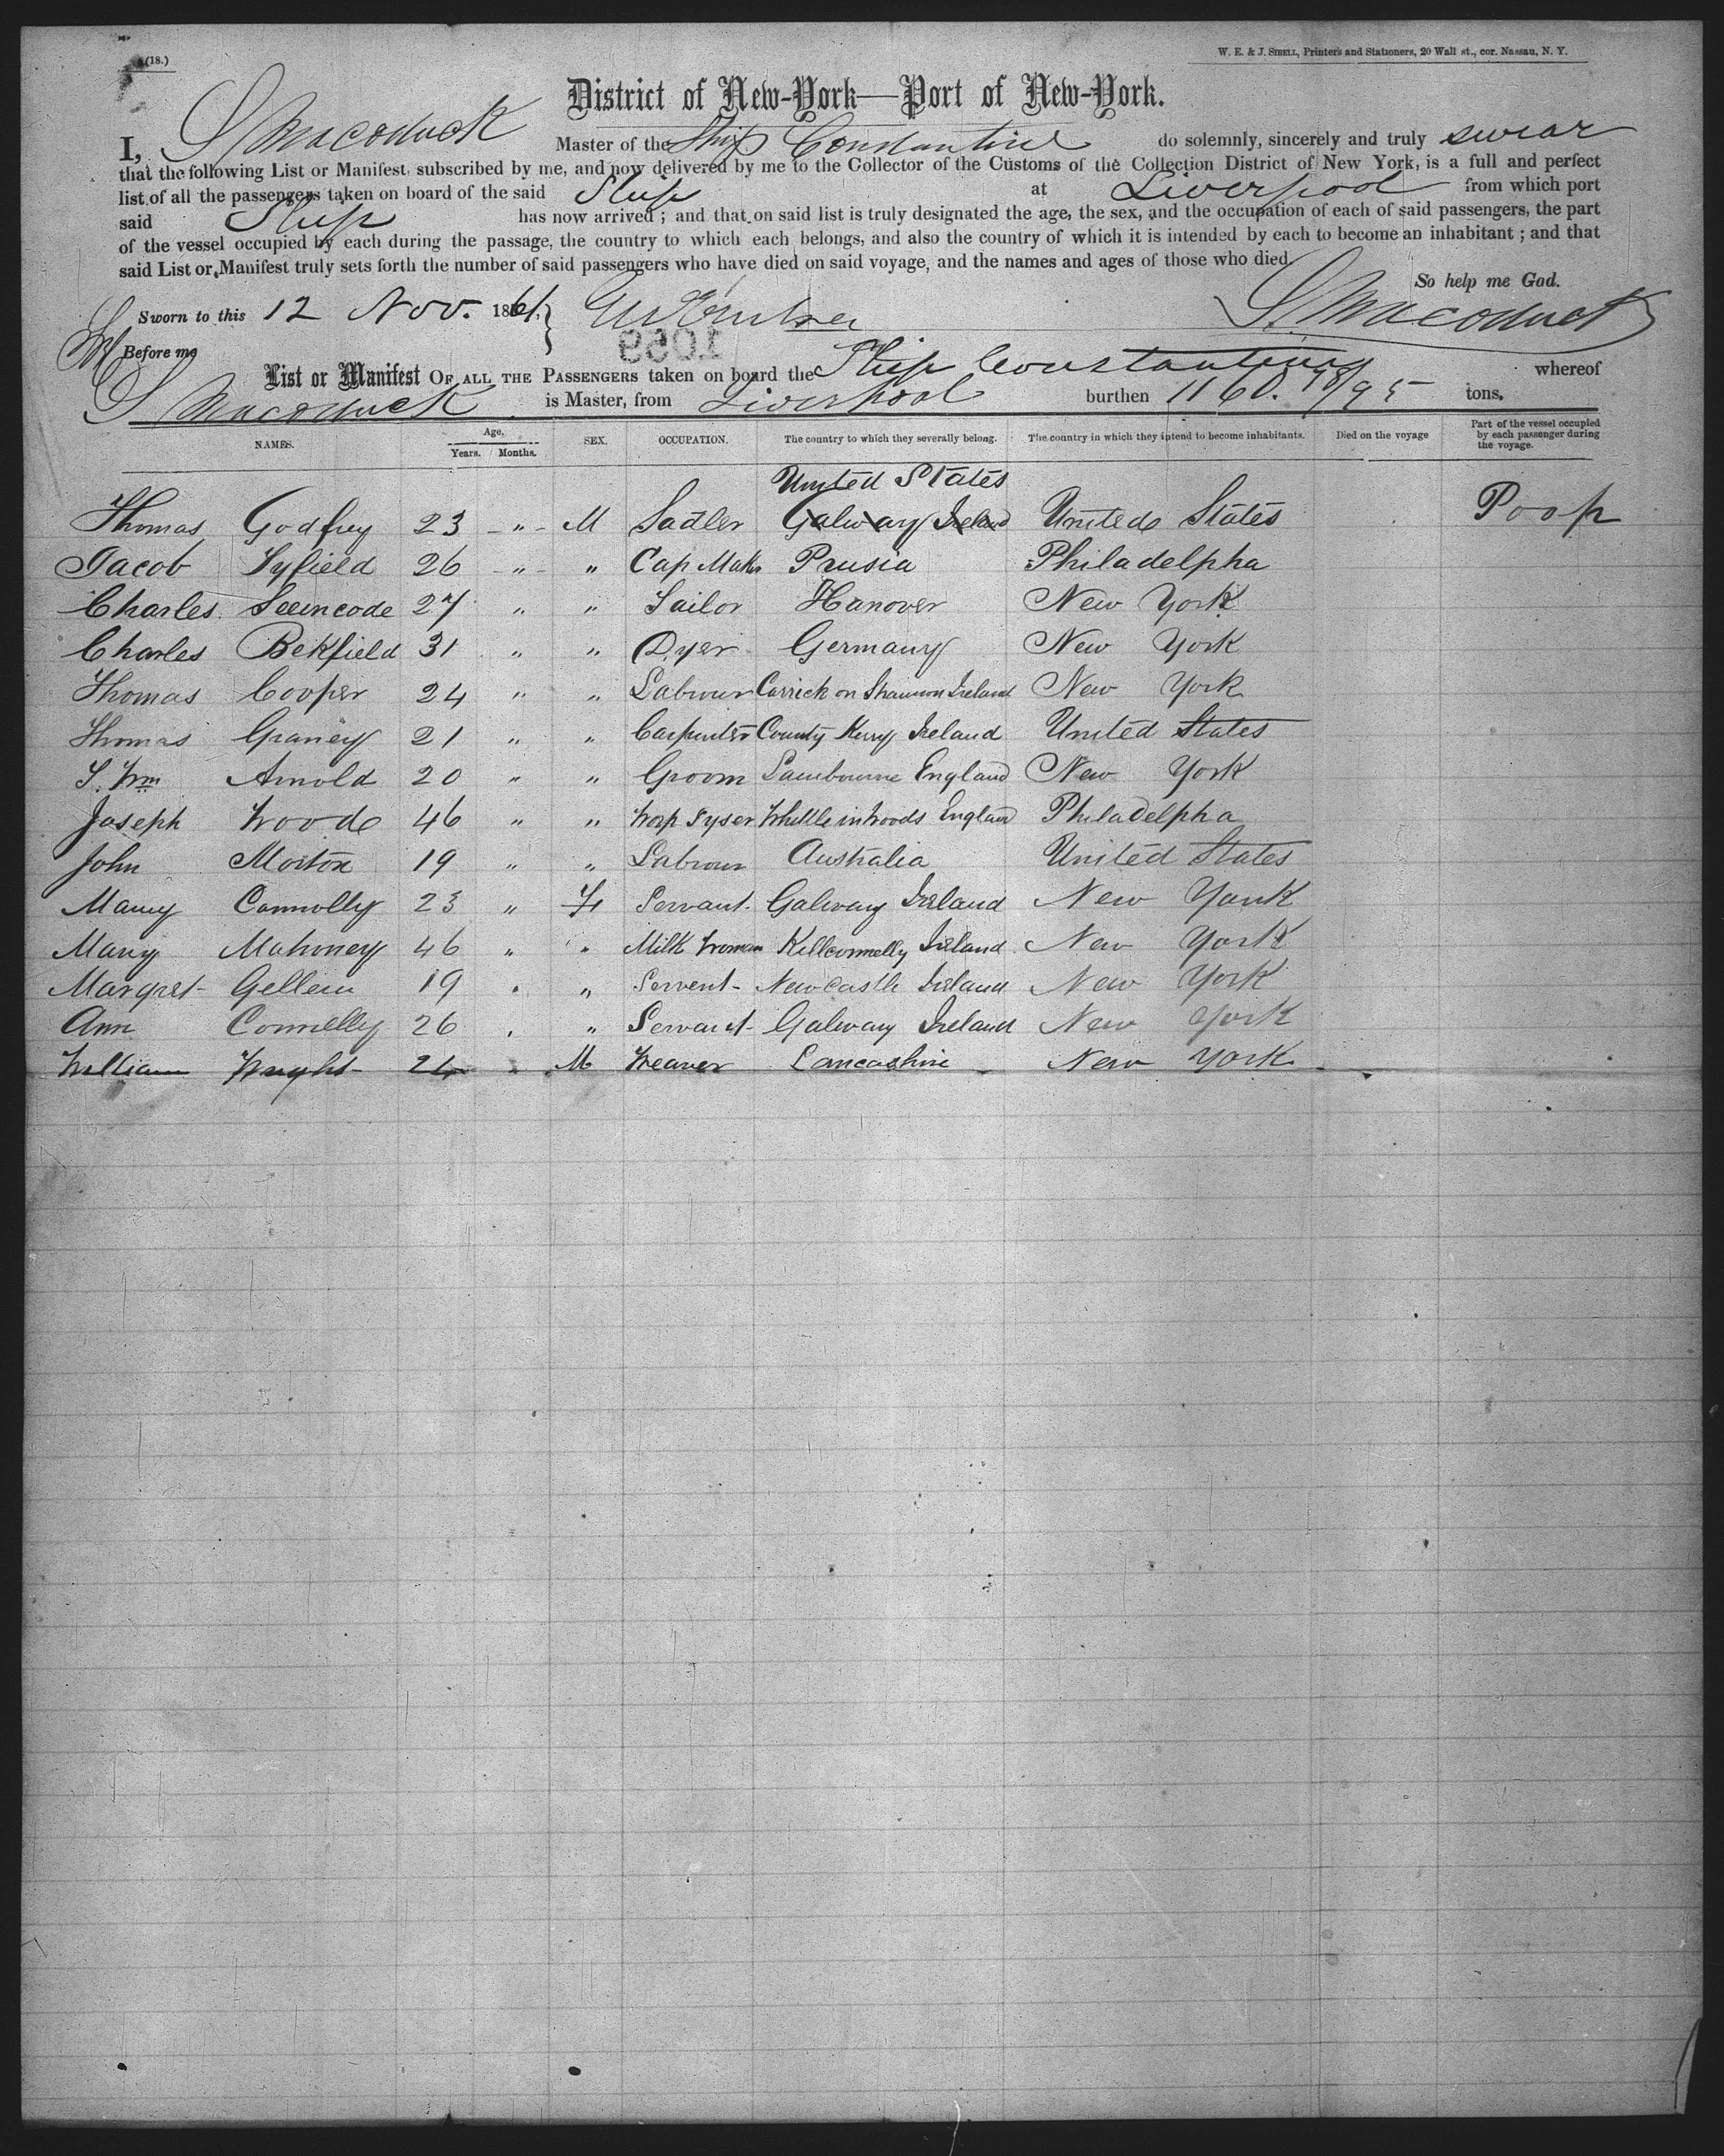 (18.)
W. E. & J. SIBELL, Printers and Stationers, 20 Wall st., cor. Nassau, N. Y.
District of New-York—Port of New-York.
I, S Macoduck Master of the Ship Constantine do solemnly, sincerely and truly swear
that the following List or Manifest, subscribed by me, and now delivered by me to the Collector of the Customs of the Collection District of New York, is a full and perfect
list of all the passengers taken on board of the said Ship at Liverpool from which port
said Ship has now arrived; and that on said list is truly designated the age, the sex, and the occupation of each of said passengers, the part
of the vessel occupied by each during the passage, the country to which each belongs, and also the country of which it is intended by each to become an inhabitant; and that
said List or Manifest truly sets forth the number of said passengers who have died on said voyage, and the names and ages of those who died.
So help me God.
Sworn to this 12 Nov. 1861, S. Macoduck
Before me
1059
List or Manifest OF ALL THE PASSENGERS taken on board the Ship Constantine whereof
S Macoduck is Master, from Liverpool burthen 1160. 98/95 tons.
NAMES. Age, Years. Months. SEX. OCCUPATION. The country to which they severally belong. The country in which they intend to become inhabitants. Died on the voyage Part of the vessel occupied by each passenger during the voyage.
United States
Thomas Godfrey 23 " M Sadler Galway Ireland United States Poop
Jacob Syfield 26 " " Cap Maker Prusia Philadelpha
Charles Seeincode 27 " " Sailor Hanover New York
Charles Bekfield 31 " " Dyer Germany New York
Thomas Cooper 24 " " Labour Carrick on Shannon Ireland New York
Thomas Graney 21 " " Carpenter County Kerry Ireland United States
S. Wm Arnold 20 " " Groom Lambourne England New York
Joseph Woode 46 " " Worp Tyser Whittle in Woods England Philadelpha
John Morton 19 " " Labour Australia United States
Mary Connolly 23 " F Servant Galway Ireland New York
Mary Mahoney 46 " " Milk Woman Killconnelly Ireland New York
Margret Gellein 19 " " Servent NewCastle Ireland New York
Ann Connelly 26 " " Servant Galway Ireland New York
William Wright 24 " M Weaver Lancashire New York